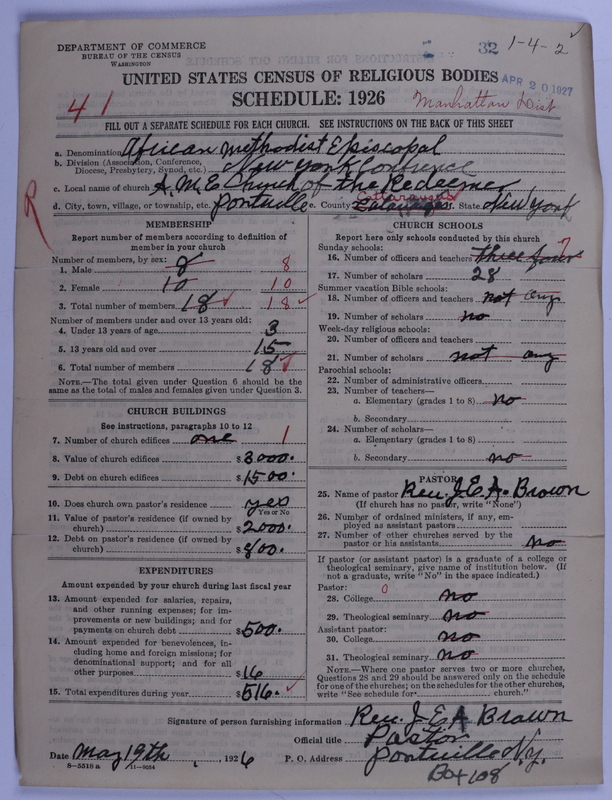 DEPARTMENT OF COMMERCE
BUREAU OF THE CENSUS
WASHINGTON
32
1-4-2
UNITED STATES CENSUS OF RELIGIOUS BODIES
APR 20 1927
SCHEDULE: 1926
41
Manhattan Dist
FILL OUT A SEPARATE SCHEDULE FOR EACH CHURCH. SEE INSTRUCTIONS ON THE BACK OF THIS SHEET
a. Denomination African Methodist Episcopal
b. Division (Association, Conference, Diocese, Presbytery, Synod, etc.) New York Conference
c. Local name of church A.M.E. Church of the Redeemer
d. City, town, village, or township, etc. Pontville e. County f. State New York
R
MEMBERSHIP
Report number of members according to definition of
member in your church
Number of members, by sex:
1. Male 8 8
2. Female 10 10
3. Total number of members 18 18
Number of members under and over 13 years old:
4. Under 13 years of age 3
5. 13 years old and over 15
6. Total number of members 18
NOTE.—The total given under Question 6 should be
same as the total of males and females given under Question 3.
CHURCH BUILDINGS
See instructions, paragraphs 10 to 12
7. Number of church edifices one 1
8. Value of church edifices $3000.
9. Debt on church edifices $1500.
10. Does church own pastor's residence yes
Yes or No
11. Value of pastor's residence (if owned by
church) $2000.
12. Debt on pastor's residence (if owned by
church) $800.
EXPENDITURES
Amount expended by your church during last fiscal year
13. Amount expended for salaries, repairs,
and other running expenses; for im-
provements or new buildings; and for
payments on church debt $500.
14. Amount expended for benevolences, in-
cluding home and foreign missions; for
denominational support; and for all
other purposes $16
15. Total expenditures during year $516.
CHURCH SCHOOLS
Report here only schools conducted by this church
Sunday schools:
16. Number of officers and teachers three
17. Number of scholars 28
Summer vacation Bible schools:
18. Number of officers and teachers not any
19. Number of scholars no
Week-day religious schools:
20. Number of officers and teachers
21. Number of scholars not any
Parochial schools:
22. Number of administrative officers
23. Number of teachers—
a. Elementary (grades 1 to 8) no
b. Secondary
24. Number of scholars—
a. Elementary (grades 1 to 8)
b. Secondary no
PASTOR
25. Name of pastor Rev. J.E.A. Brown
(If church has no pastor, write "None")
26. Number of ordained ministers, if any, em-
ployed as assistant pastors
27. Number of other churches served by the
pastor or his assistants no
If pastor (or assistant pastor) is a graduate of a college or
theological seminary, give name of institution below. (If
not a graduate, write "No" in the space indicated.)
Pastor: 0
28. College no
29. Theological seminary No
Assistant pastor:
30. College no
31. Theological seminary No
NOTE.—Where one pastor serves two or more churches,
Questions 28 and 29 should be answered only on the schedule
for one of the churches; on the schedules for the other churches,
write "See schedule for church."
Signature of person furnishing information Rev. J.E.A Brown
Official title Pastor
Date May 19th, 1926 P. O. Address Pontville N.Y.
Box 108
S—5518 a 11—9054